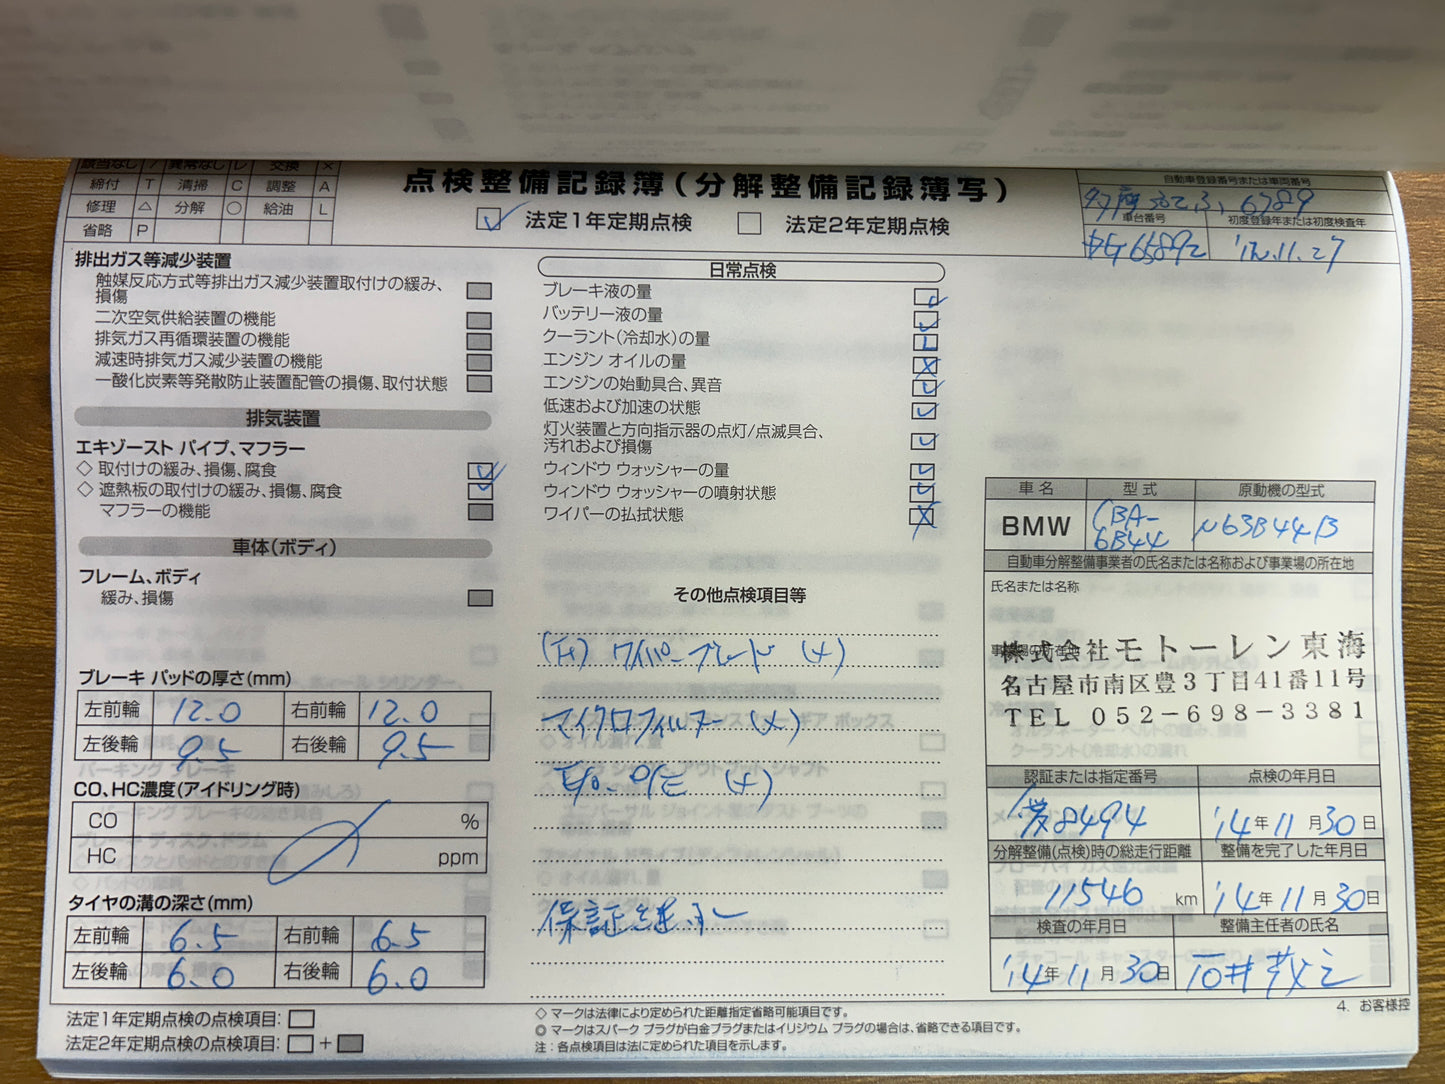 該当なし / 異常なし レ 交換 ×
締付 T 清掃 C 調整 A
修理 △ 分解 ○ 給油 L
省略 P
点検整備記録簿(分解整備記録簿写)
法定1年定期点検 法定2年定期点検
自動車登録番号または車両番号
6789
車台番号 初度登録年または初度検査年
G65892 '12.11.27
排出ガス等減少装置
触媒反応方式等排出ガス減少装置取付けの緩み、
損傷
二次空気供給装置の機能
排気ガス再循環装置の機能
減速時排気ガス減少装置の機能
一酸化炭素等発散防止装置配管の損傷、取付状態
排気装置
エキゾースト パイプ、マフラー
◇ 取付けの緩み、損傷、腐食
◇ 遮熱板の取付けの緩み、損傷、腐食
マフラーの機能
車体(ボディ)
フレーム、ボディ
緩み、損傷
ブレーキ パッドの厚さ(mm)
左前輪 12.0 右前輪 12.0
左後輪 9.5 右後輪 9.5
CO、HC濃度(アイドリング時)
CO %
HC ppm
タイヤの溝の深さ(mm)
左前輪 6.5 右前輪 6.5
左後輪 6.0 右後輪 6.0
法定1年定期点検の点検項目:
法定2年定期点検の点検項目: +
日常点検
ブレーキ液の量
バッテリー液の量
クーラント(冷却水)の量
エンジン オイルの量
エンジンの始動具合、異音
低速および加速の状態
灯火装置と方向指示器の点灯/点滅具合、
汚れおよび損傷
ウィンドウ ウォッシャーの量
ウィンドウ ウォッシャーの噴射状態
ワイパーの払拭状態
その他点検項目等
ワイパーブレード (×)
マイクロフィルター (×)
E/O. O/E (×)
保証継承
◇ マークは法律により定められた距離指定省略可能項目です。
◎ マークはスパーク プラグが白金プラグまたはイリジウム プラグの場合は、省略できる項目です。
注：各点検項目は法に定められた項目を示します。
車名 型式 原動機の型式
BMW CBA-6B44 N63B44B
自動車分解整備事業者の氏名または名称および事業場の所在地
氏名または名称
事業場の所在地
株式会社モトーレン東海
名古屋市南区豊3丁目41番11号
TEL 052-698-3381
認証または指定番号 点検の年月日
愛8494 '14年11月30日
分解整備(点検)時の総走行距離 整備を完了した年月日
11546 km '14年11月30日
検査の年月日 整備主任者の氏名
'14年11月30日 石井
4. お客様控